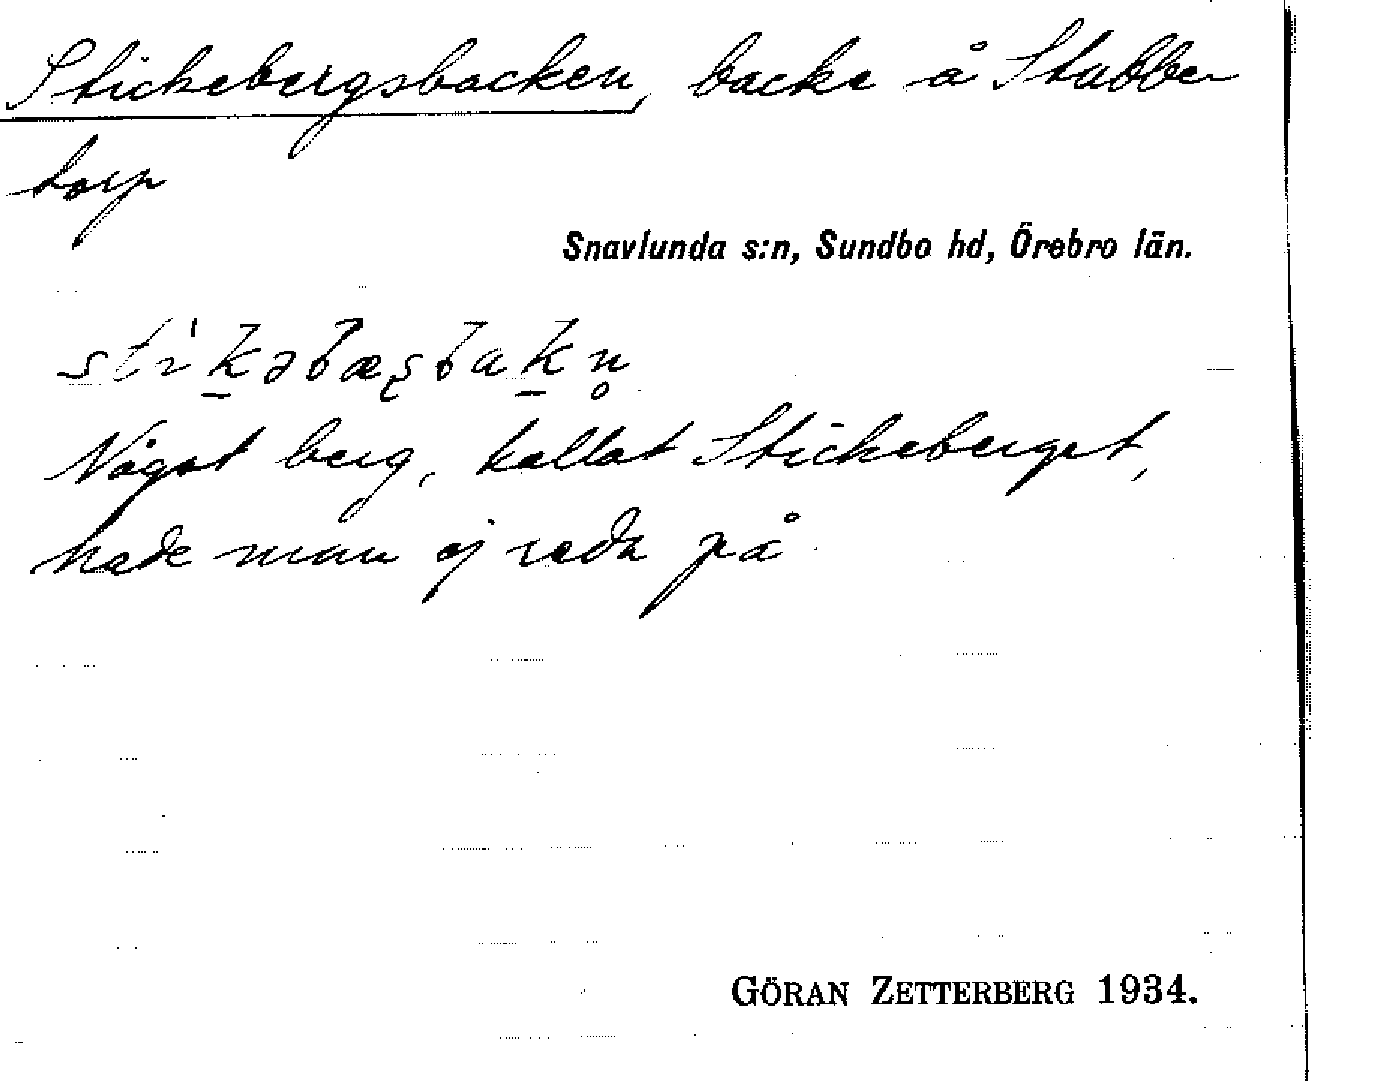 Stickebergsbacken, backe å Stubbe
torp
Snavlunda s:n, Sundbo hd, Örebro län.
sti'kəbæʂbakn̥
Något berg, kallat Stickeberget,
hade man ej reda på
GÖRAN ZETTERBERG 1934.